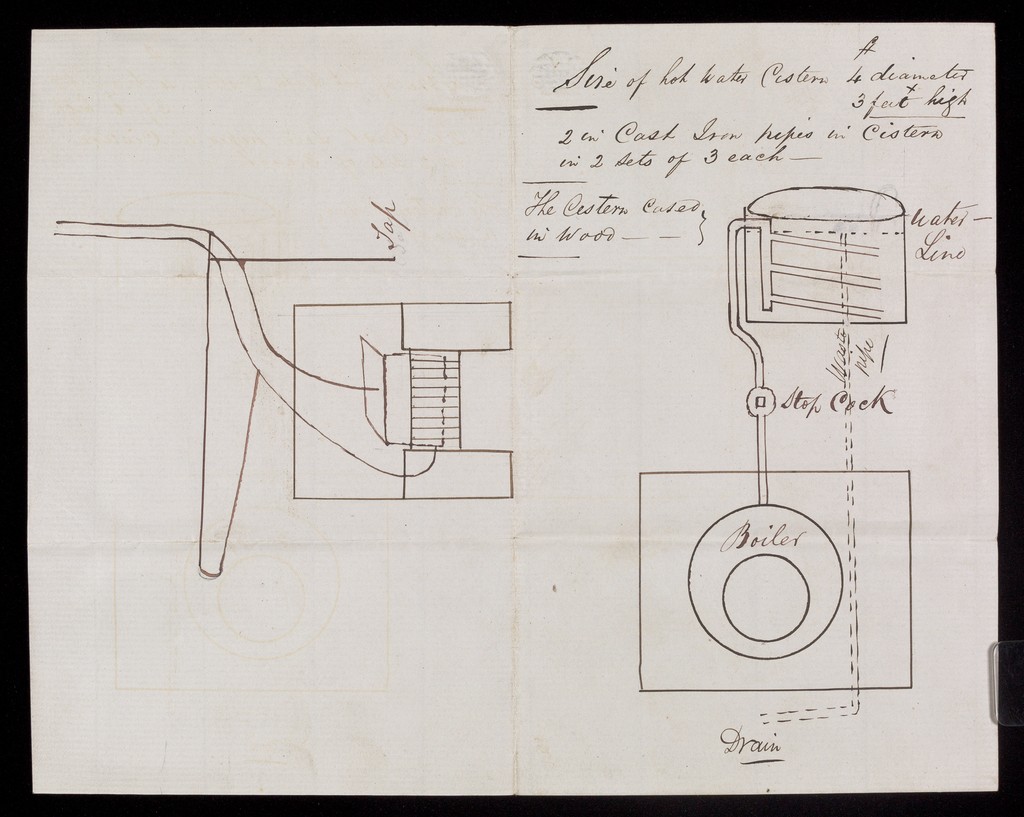 ft
Size of hot water Cistern 4 diameter
x
3 feet high
2 in Cast Iron pipes in Cistern
in 2 sets of 3 each —
The Cestern Cased }
in Wood — —
Tap
Water —
Line
Waste
pipe
Stop Cock
Boiler
Drain